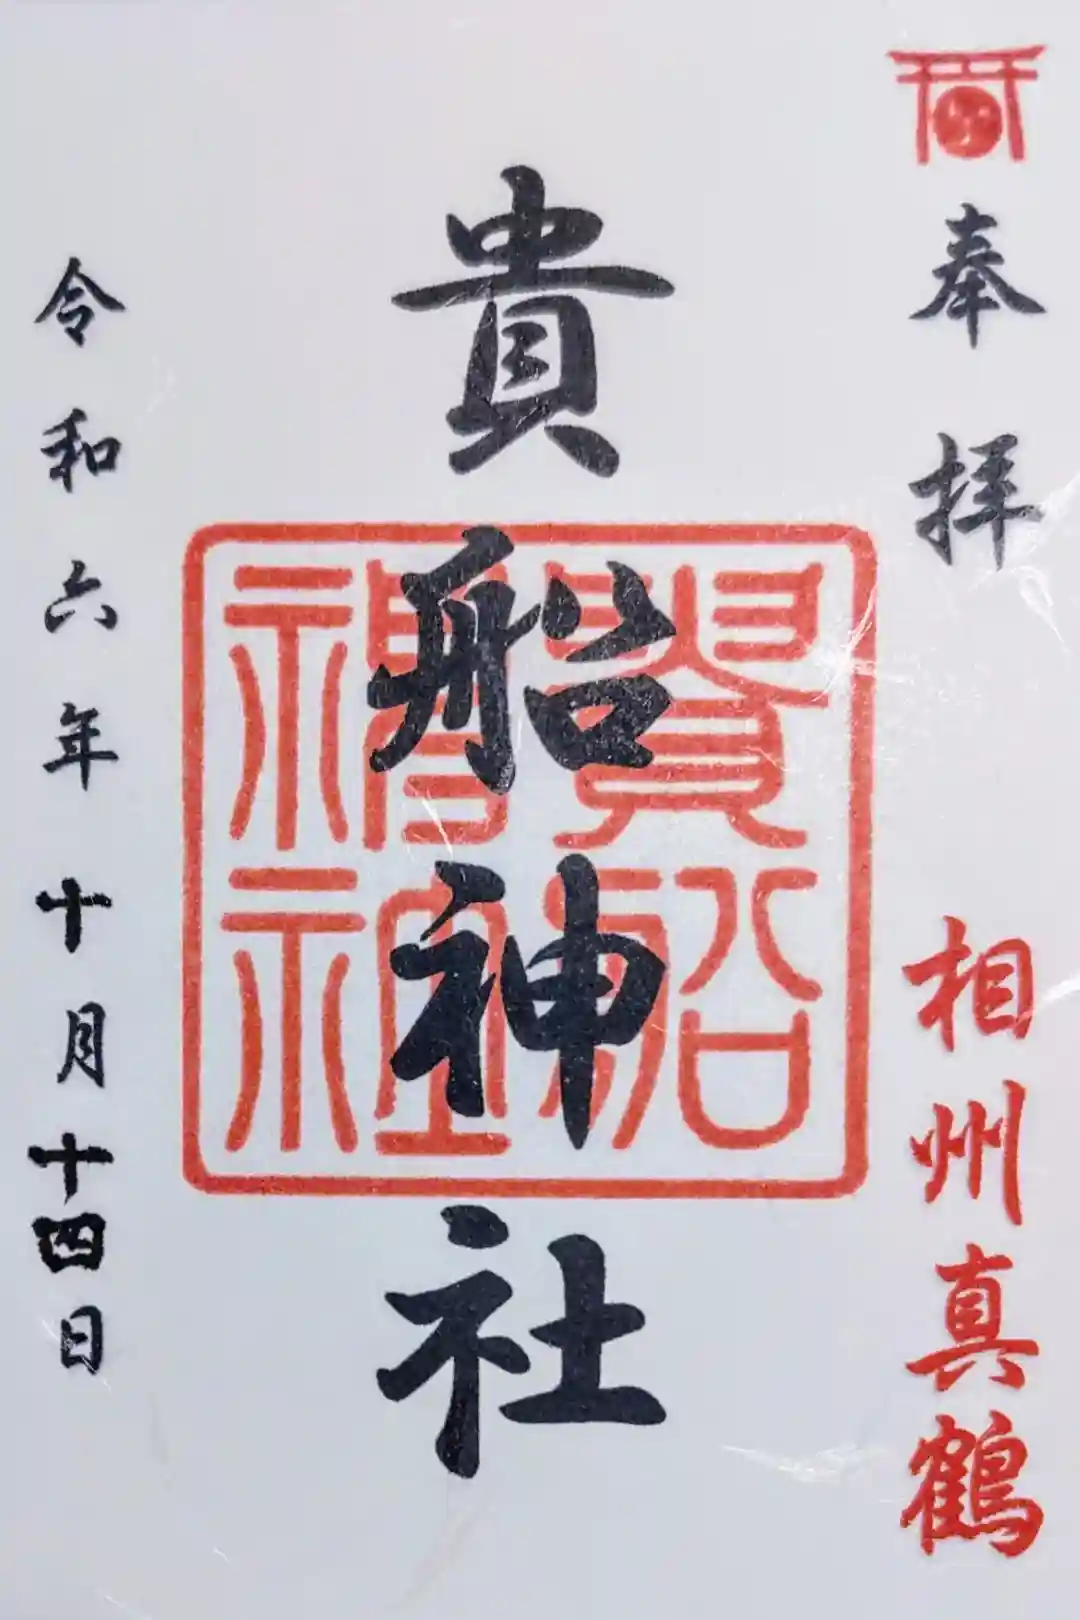 奉拝
相州真鶴
貴船神社
貴船神社
令和六年十月十四日